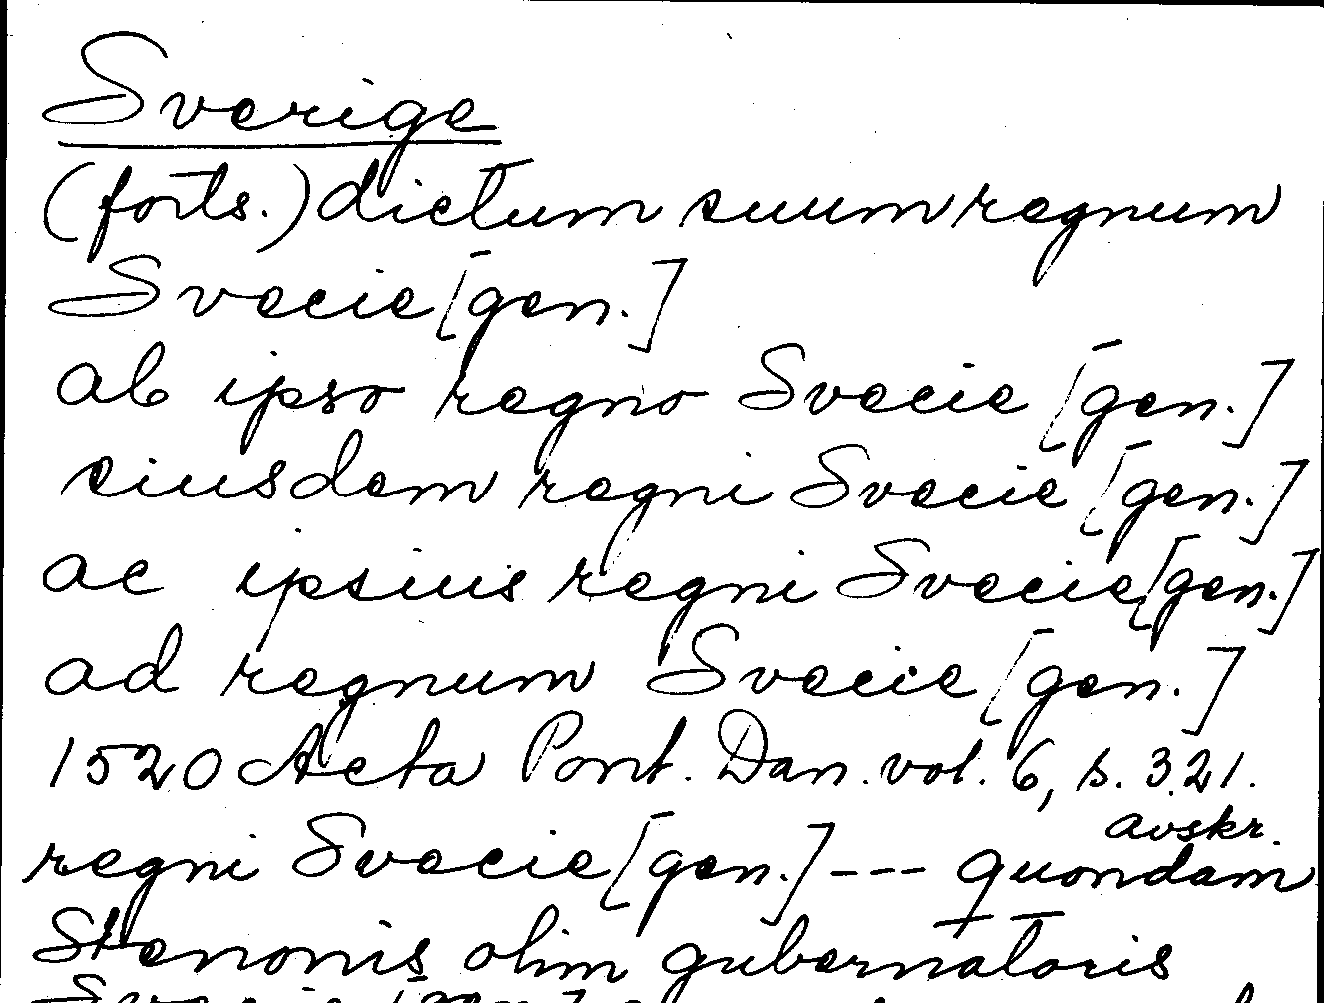 Sverige
(forts.) dictum suum regnum
Svecie [gen.]
ab ipso regno Svecie [gen.]
eiusdem regni Svecie [gen.]
ac ipsius regni Svecie [gen.]
ad regnum Svecie [gen.]
1520 Acta Pont. Dan. vol. 6, s. 321.
avskr.
regni Svecie [gen.] --- quondam
Stenonis olim gubernatoris
Svecie [gen.]